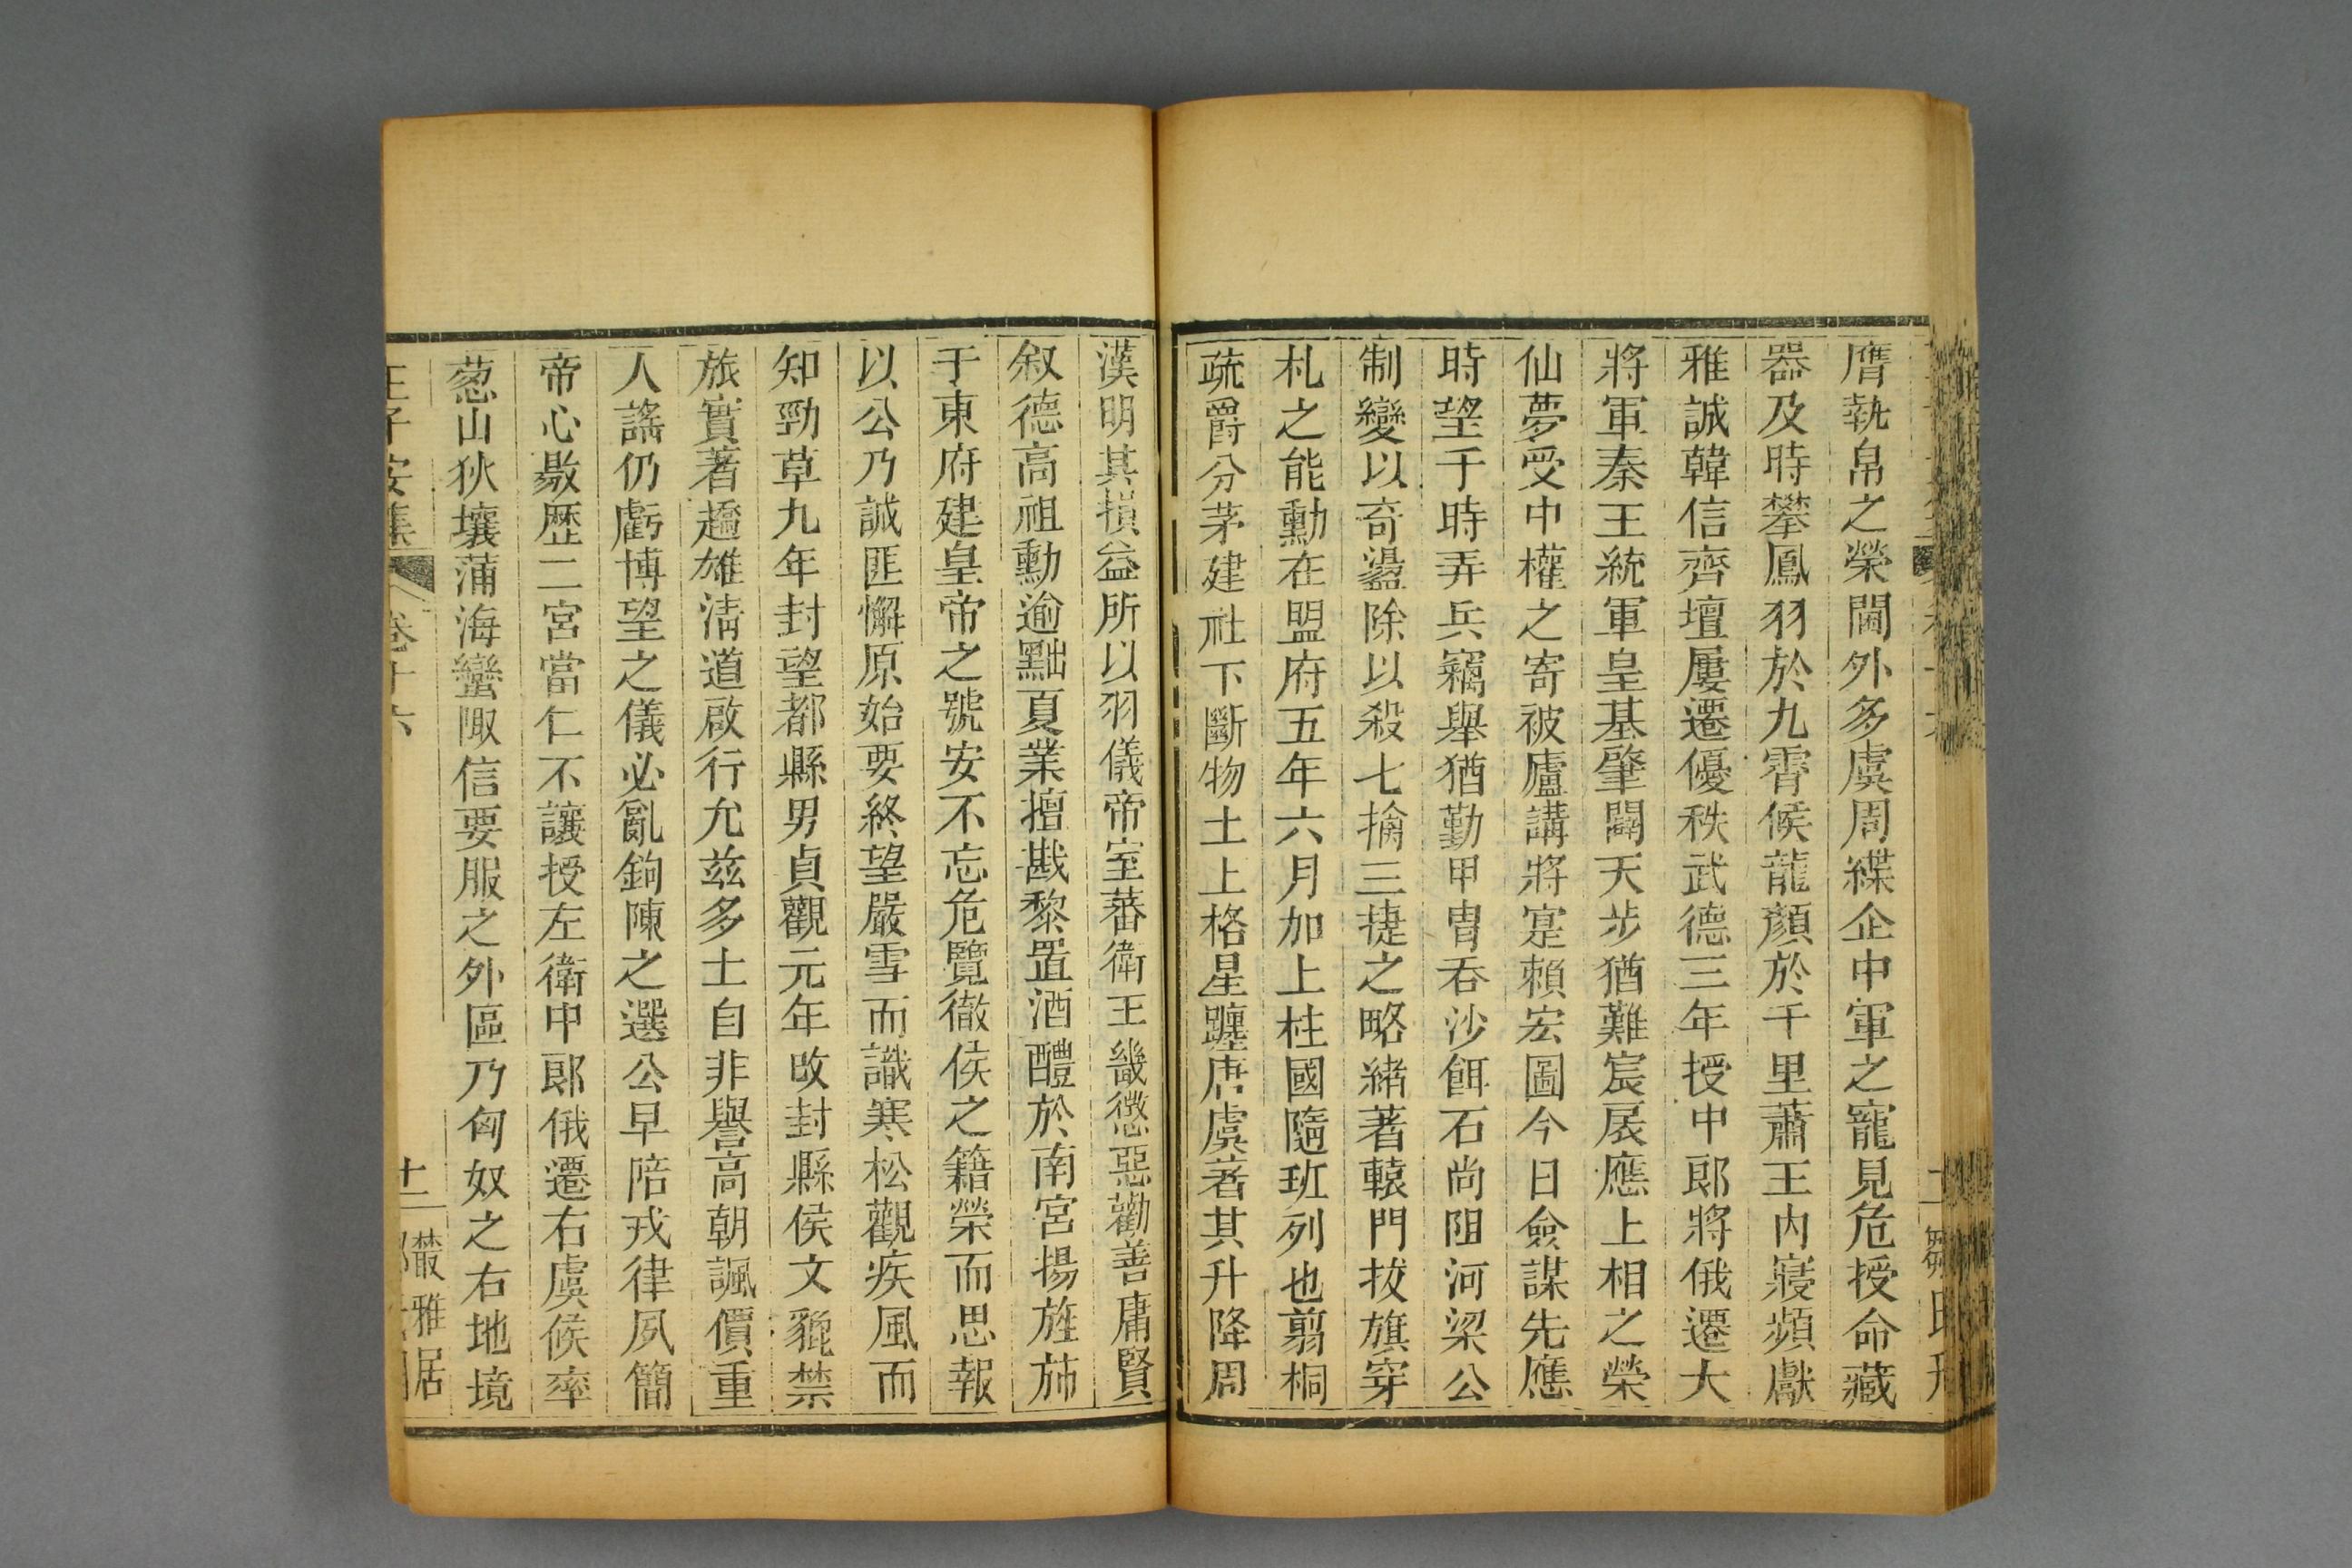 膺執帛之榮閫外多虞周緤企中軍之寵見危授命藏
器及時攀鳳羽於九霄候龍顏於千里蕭王內寢頻獻
雅誠韓信齊壇屢遷優秩武德三年授中郎將俄遷大
將軍秦王統軍皇基肇闢天步猶難宸扆應上相之榮
仙夢受中權之寄被廬講將寔賴宏圖今日僉謀先應
時望于時弄兵竊舉猶勤甲胄吞沙餌石尚阻河梁公
制變以奇盪除以殺七擒三捷之略緒著轅門拔旗穿
札之能勳在盟府五年六月加上柱國隨班列也翦桐
疏爵分茅建社下斷物土上格星躔唐虞著其升降周
漢明其損益所以羽儀帝室蕃衛王畿懲惡勸善庸賢
叙德高祖勳逾黜夏業擅戡黎置酒醴於南宮揚旌斾
于東府建皇帝之號安不忘危覽徹侯之籍榮而思報
以公乃誠匪懈原始要終望嚴雪而識寒松觀疾風而
知勁草九年封望都縣男貞觀元年改封縣侯文貔禁
旅實著趫雄淸道啟行允兹多士自非譽高朝諷價重
人謠仍虧博望之儀必亂鉤陳之選公早陪戎律夙簡
帝心敭歷二宮當仁不讓授左衛中郎俄遷右虞候率
葱山狄壤蒲海蠻陬信要服之外區乃匈奴之右地境
王子安集 卷十六 十二 藂雅居